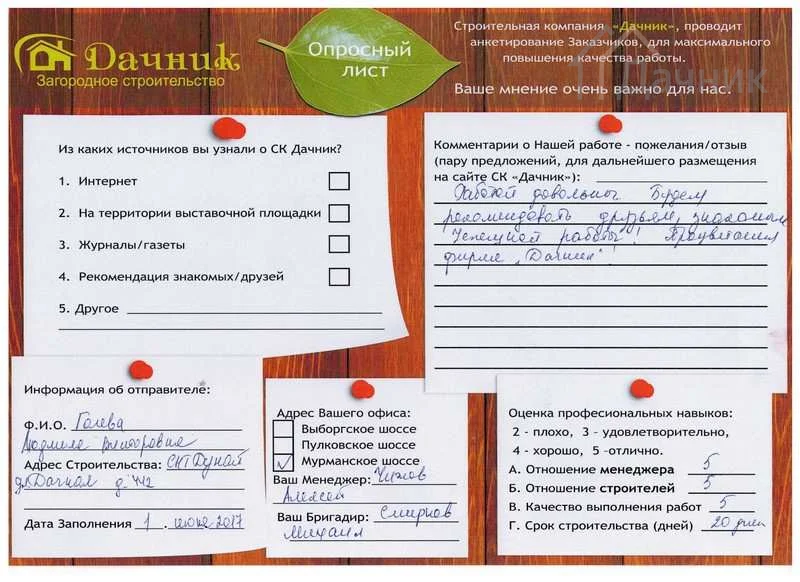 Дачник
Загородное строительство
Опросный
лист
Строительная компания «Дачник», проводит
анкетирование Заказчиков, для максимального
повышения качества работы.
Ваше мнение очень важно для нас.
Дачник
Из каких источников вы узнали о СК Дачник?
1. Интернет
2. На территории выставочной площадки
3. Журналы/газеты
4. Рекомендация знакомых/друзей
5. Другое
Комментарии о Нашей работе - пожелания/отзыв
(пару предложений, для дальнейшего размещения
на сайте СК «Дачник»):
Работой довольны. Будем
рекомендовать друзьям, знакомым
Успешной работы! Процветания
фирме "Дачник"!
Информация об отправителе:
Ф.И.О. Голева
Людмила Викторовна
Адрес Строительства: СНТ Дунай
ул. Дачная д. 442
Дата Заполнения 1 . июня 2017
Адрес Вашего офиса:
Выборгское шоссе
Пулковское шоссе
Мурманское шоссе
Ваш Менеджер: Чижов
Алексей
Ваш Бригадир: Смирнов
Михаил
Оценка професиональных навыков:
2 - плохо, 3 - удовлетворительно,
4 - хорошо, 5 -отлично.
А. Отношение менеджера 5
Б. Отношение строителей 5
В. Качество выполнения работ 5
Г. Срок строительства (дней) 20 дней